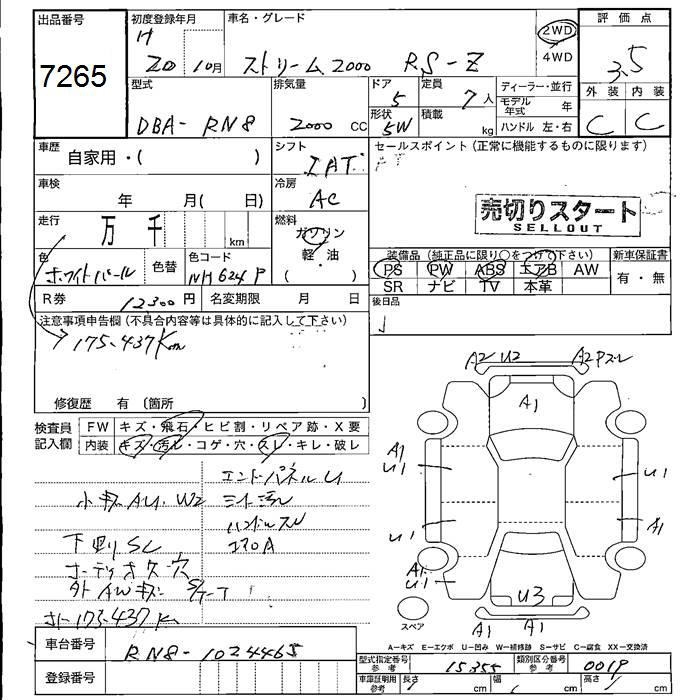 出品番号
7265
初度登録年月
H
20 10月
車名・グレード
ストリーム2000 RS-Z
2WD
4WD
評価点
3.5
外装 内装
C C
型式
DBA- RN8
排気量
2000 CC
ドア
5
形状
5W
定員
7人
積載
kg
ディーラー・並行
モデル年式 年
ハンドル 左・右
車歴
自家用・( )
シフト
IAT
セールスポイント (正常に機能するものに限ります)
車検
年 月( 日)
冷房
AC
走行
万 千
km
燃料
ガソリン
軽・油
売切りスタート
SELLOUT
色
ホワイトパール
色替
色コード
NH624P
装備品 (純正品に限り○をつけて下さい)
新車保証書
PS PW ABS エアB AW
SR ナビ TV 本革
有・無
R券
12,300円
名変期限 月 日
後日品
注意事項申告欄 (不具合内容等は具体的に記入して下さい)
175.437Km
修復歴 有 (箇所 )
検査員記入欄
FW キズ・飛石・ヒビ割・リペア跡・X要
内装 キズ・汚レ・コゲ・穴・スレ・キレ・破レ
エンドパネルU
小キズAU.W2
ハンドルスレ
エアロA
下回りSC
外AWキズ
175.437K
A2 U2 A2
A1
A1
U1
U1
U1
A1
A1
U1
U3
A1 A1
スペア
A-キズ E-エクボ U-凹み W-補修跡 S-サビ C-腐食 XX-交換済
車台番号
RN8-1024465
登録番号
型式指定番号 参考
15355
類別区分番号 参考
0019
車庫証明用 参考
長さ cm 幅 cm 高さ cm